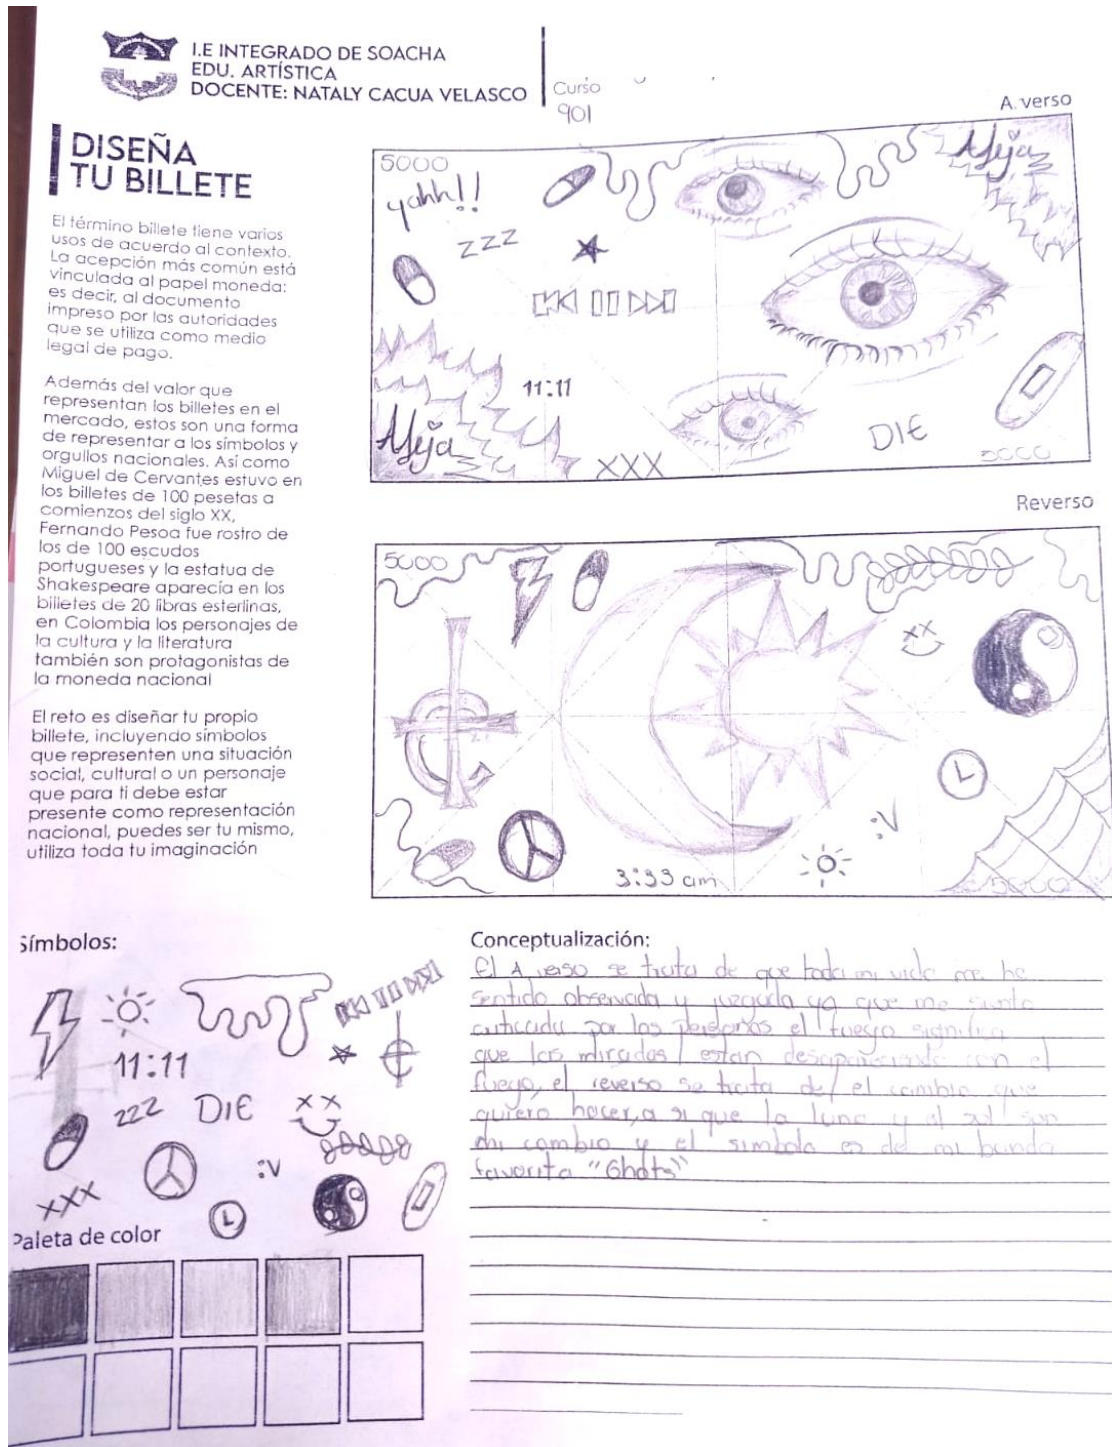 I.E INTEGRADO DE SOACHA
EDU. ARTÍSTICA
DOCENTE: NATALY CACUA VELASCO
Curso
901
DISEÑA
TU BILLETE
El término billete tiene varios
usos de acuerdo al contexto.
La acepción más común está
vinculada al papel moneda;
es decir, al documento
impreso por las autoridades
que se utiliza como medio
legal de pago.
Además del valor que
representan los billetes en el
mercado, estos son una forma
de representar a los símbolos y
orgullos nacionales. Así como
Miguel de Cervantes estuvo en
los billetes de 100 pesetas a
comienzos del siglo XX,
Fernando Pesoa fue rostro de
los de 100 escudos
portugueses y la estatua de
Shakespeare aparecía en los
billetes de 20 libras esterlinas,
en Colombia los personajes de
la cultura y la literatura
también son protagonistas de
la moneda nacional
El reto es diseñar tu propio
billete, incluyendo símbolos
que representen una situación
social, cultural o un personaje
que para ti debe estar
presente como representación
nacional, puedes ser tu mismo,
utiliza toda tu imaginación
A. verso
5000
yahh!!
Aleja
zzz
11:11
Aleja
XXX
DIE
5000
Reverso
5000
xx
:v
3:33 am
5000
Símbolos:
11:11
zzz DIE xx
:v
xxx
Paleta de color
Conceptualización:
El A verso se trata de que toda mi vida me he
sentido observada y juzgada ya que me siento
criticada por las personas el fuego significa
que las miradas estan desapareciendo con el
fuego, el reverso se trata de el cambio que
quiero hacer, a si que la luna y el sol son
mi cambio y el simbolo es de mi banda
favorita "Ghots"